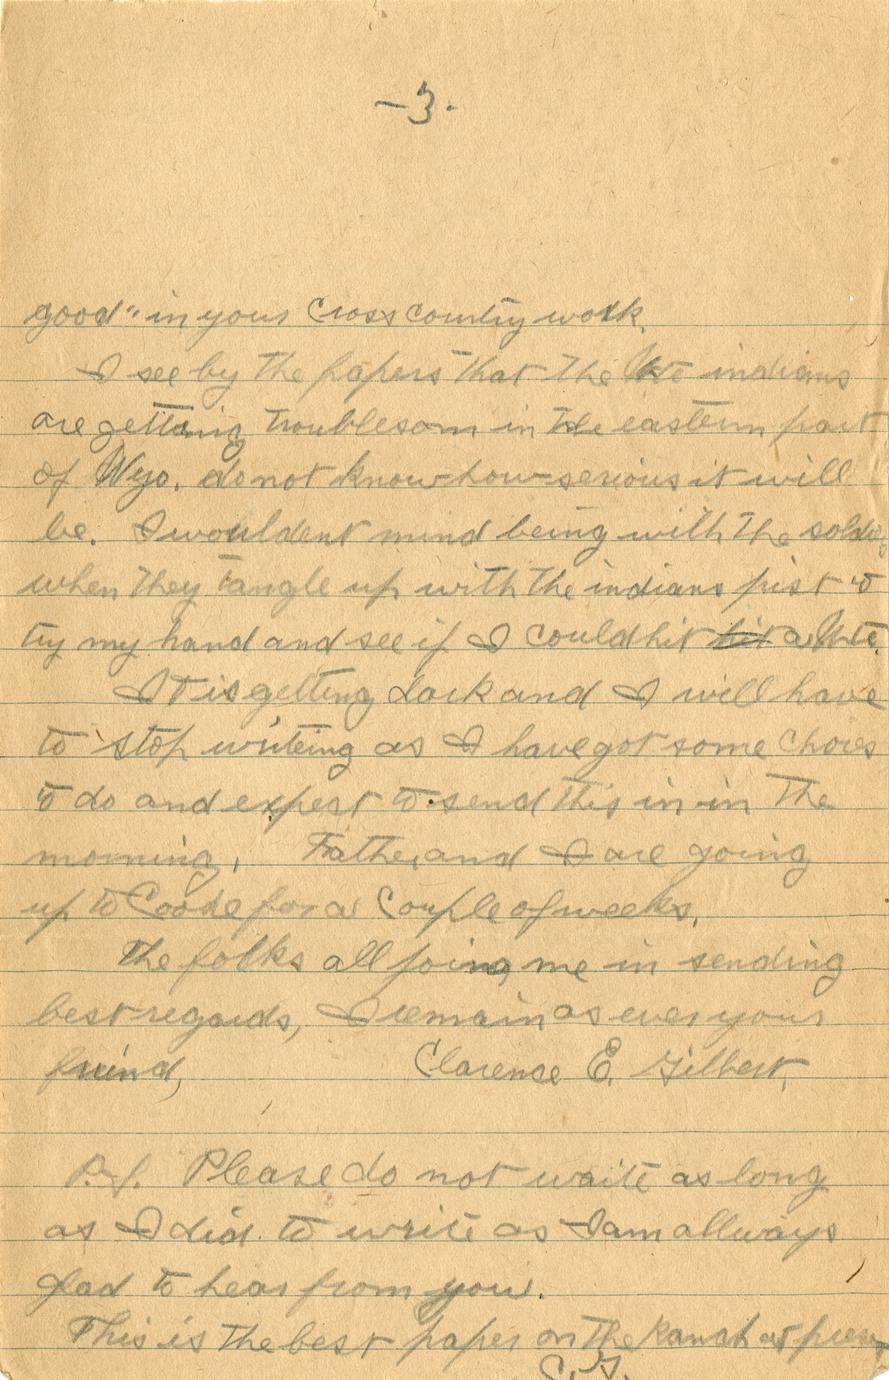 -3-
good" in your Cross country work.
I see by the papers that the Ute indians
are getting troublesom in the eastern part
of Wyo. do not know how serious it will
be. I wouldent mind being with the
when they tangle up with the indians just to
try my hand and see if I could hit hit a Ute.
It is getting dark and I will have
to stop writeing as I have got some chores
to do and expect to send this in in the
morning. Father and I are going
up to Cooke for a Couple of weeks.
The folks all join me in sending
best regards, I remain as ever your
friend, Clarence E. Gilbert.
P.S. Please do not waite as long
as I did to write as I am allways
glad to hear from you.
This is the best paper on the Ranch at
C.G.